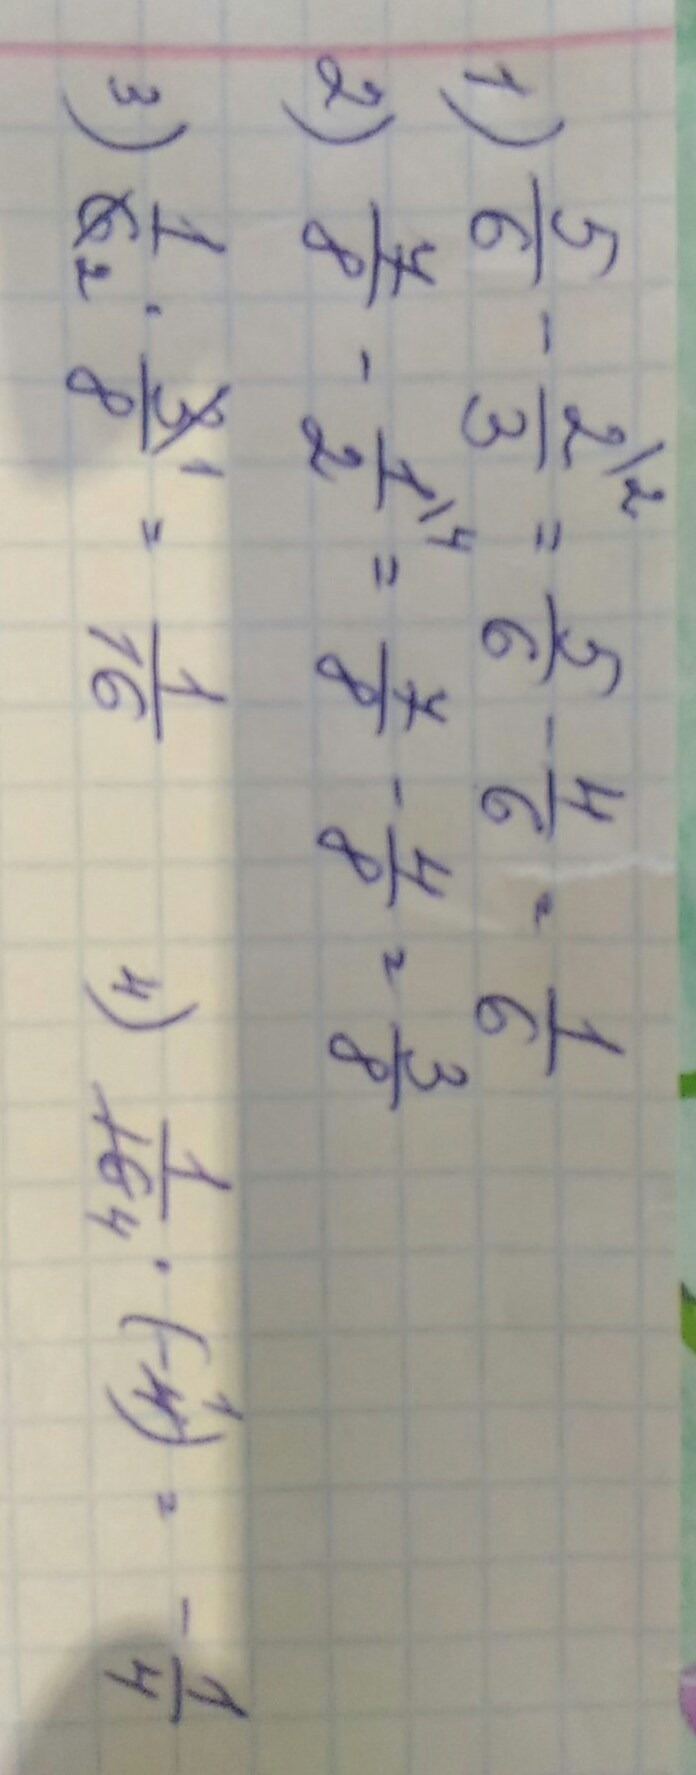 1) 5/6 - 2\2/3 = 5/6 - 4/6 = 1/6
2) 7/8 - 1\4/2 = 7/8 - 4/8 = 3/8
3) 1/6 2 · 3 1/8 = 1/16 4) 1/16 4 · (-4 1) = - 1/4